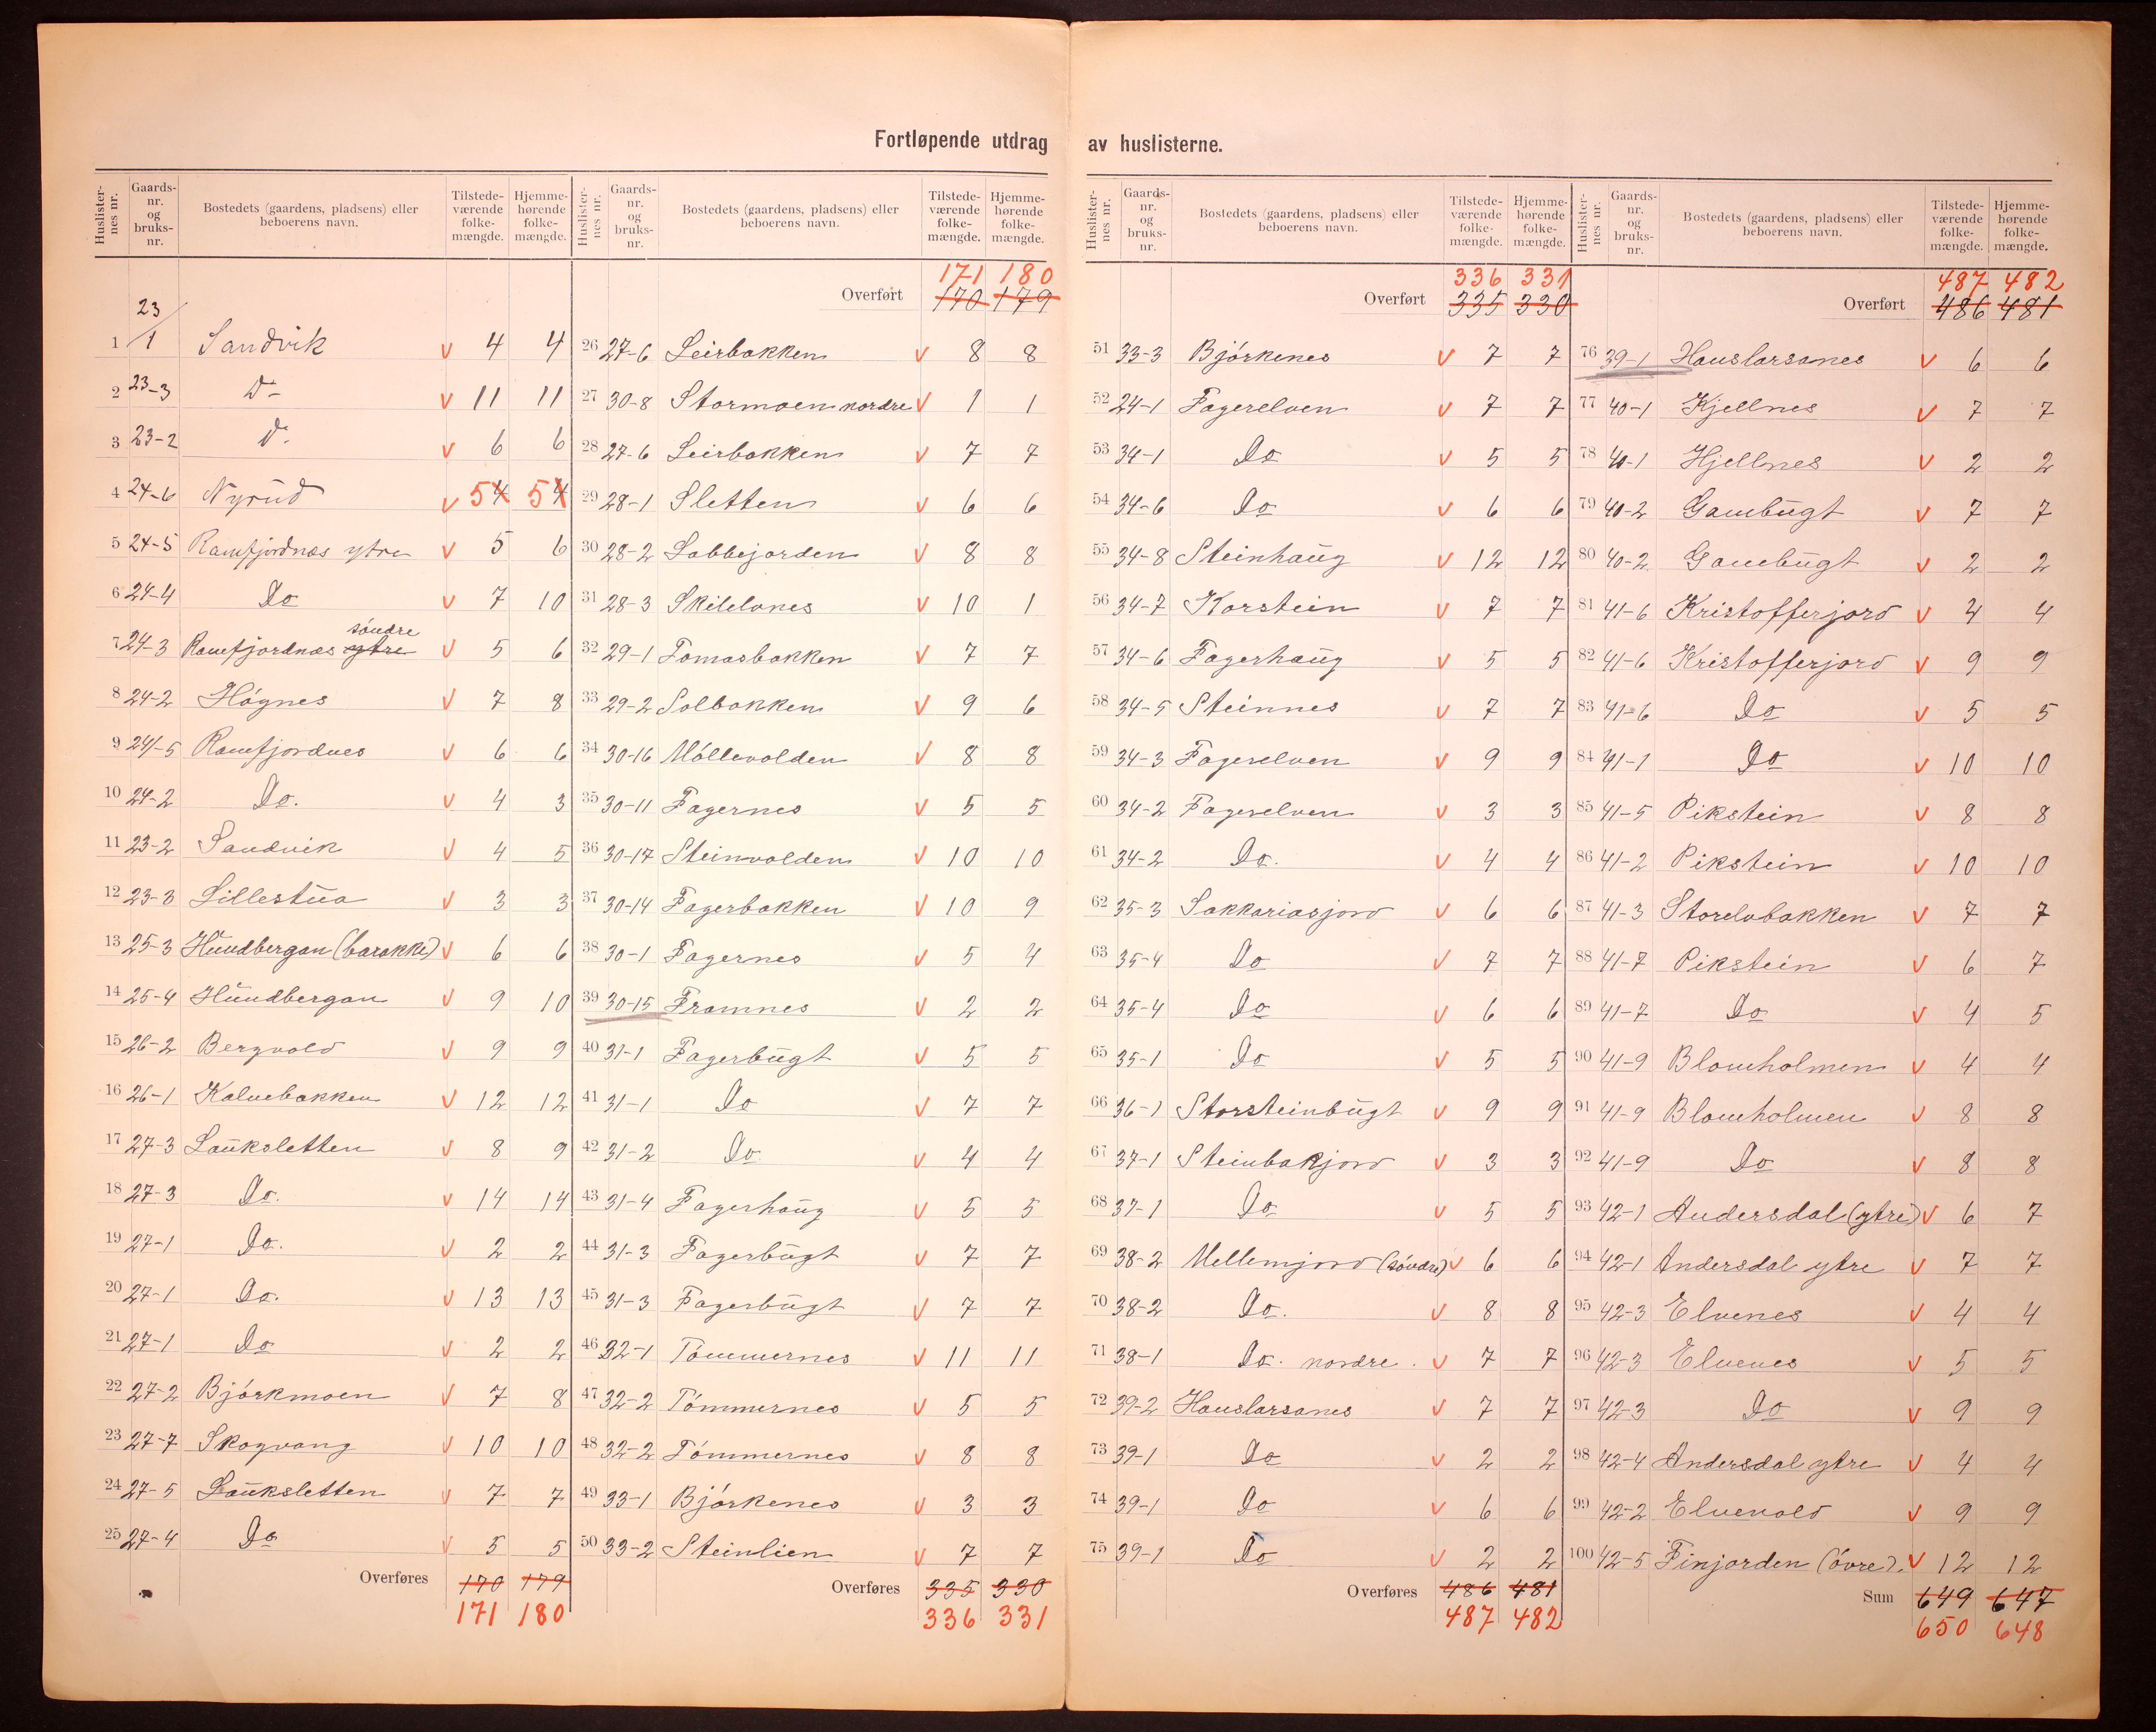 Fortløpende utdrag av huslisterne.
Huslister-nes nr. Gaards-nr. og bruks-nr. Bostedets (gaardens, pladsens) eller beboerens navn. Tilstede-værende folke-mængde. Hjemme-hørende folke-mængde.
1 23/1 Sandvik v 4 4
2 23-3 Do v 11 11
3 23-2 Do v 6 6
4 24-6 Nyrud v 5 4 5 4
5 24-5 Ramfjordnæs ytre v 5 6
6 24-4 Do v 7 10
7 24-3 Ramfjordnæs ytre søndre v 5 6
8 24-2 Høgnes v 7 8
9 24-5 Ramfjordnes v 6 6
10 24-2 Do. v 4 3
11 23-2 Sandvik v 4 5
12 23-3 Lillestua v 3 3
13 25-3 Hundbergan (barakke) v 6 6
14 25-4 Hundbergan v 9 10
15 26-2 Bergvold v 9 9
16 26-1 Kalvebakken v 12 12
17 27-3 Lauksletten v 8 9
18 27-3 Do. v 14 14
19 27-1 Do. v 2 2
20 27-1 Do. v 13 13
21 27-1 Do v 2 2
22 27-2 Bjórkmoen v 7 8
23 27-7 Skogvang v 10 10
24 27-5 Lauksletten v 7 7
25 27-4 Do v 5 5
Overføres 170 179
171 180
Huslister-nes nr. Gaards-nr. og bruks-nr. Bostedets (gaardens, pladsens) eller beboerens navn. Tilstede-værende folke-mængde. Hjemme-hørende folke-mængde.
171 180
Overført 170 179
26 27-6 Leirbakken v 8 8
27 30-8 Stormoen nordre v 1 1
28 27-6 Leirbakken v 7 7
29 28-1 Sletten v 6 6
30 28-2 Labbejorden v 8 8
31 28-3 Skilelvnes v 10 1
32 29-1 Tomasbakken v 7 7
33 29-2 Solbakken v 9 6
34 30-16 Móllevolden v 8 8
35 30-11 Fagernes v 5 5
36 30-17 Steinvolden v 10 10
37 30-14 Fagerbakken v 10 9
38 30-1 Fagernes v 5 4
39 30-15 Framnes v 2 2
40 31-1 Fagerbugt v 5 5
41 31-1 Do v 7 7
42 31-2 Do v 4 4
43 31-4 Fagerhaug v 5 5
44 31-3 Fagerbugt v 7 7
45 31-3 Fagerbugt v 7 7
46 32-1 Tómmernes v 11 11
47 32-2 Tómmernes v 5 5
48 32-2 Tómmernes v 8 8
49 33-1 Bjórkenes v 3 3
50 33-2 Steinlien v 7 7
Overføres 335 330
336 331
Huslister-nes nr. Gaards-nr. og bruks-nr. Bostedets (gaardens, pladsens) eller beboerens navn. Tilstede-værende folke-mængde. Hjemme-hørende folke-mængde.
336 331
Overført 335 330
51 33-3 Bjórkenes v 7 7
52 24-1 Fagerelven v 7 7
53 34-1 Do v 5 5
54 34-6 Do v 6 6
55 34-8 Steinhaug v 12 12
56 34-7 Korstein v 7 7
57 34-6 Fagerhaug v 5 5
58 34-5 Steinnes v 7 7
59 34-3 Fagerelven v 9 9
60 34-2 Fagerelven v 3 3
61 34-2 Do. v 4 4
62 35-3 Sakkariasjord v 6 6
63 35-4 Do v 7 7
64 35-4 Do v 6 6
65 35-1 Do v 5 5
66 36-1 Storsteinbugt v 9 9
67 37-1 Steinbakjord v 3 3
68 37-1 Do v 5 5
69 38-2 Mellemjord (sóndre) v 6 6
70 38-2 Do. v 8 8
71 38-1 Do. nordre. v 7 7
72 39-2 Hanslarsanes v 7 7
73 39-1 Do v 2 2
74 39-1 Do v 6 6
75 39-1 Do v 2 2
Overføres 486 481
487 482
Huslister-nes nr. Gaards-nr. og bruks-nr. Bostedets (gaardens, pladsens) eller beboerens navn. Tilstede-værende folke-mængde. Hjemme-hørende folke-mængde.
487 482
Overført 486 481
76 39-1 Hanslarsanes v 6 6
77 40-1 Kjellnes v 7 7
78 40-1 Hjellnes v 2 2
79 40-2 Gambugt v 7 7
80 40-2 Gamebugt v 2 2
81 41-6 Kristofferjord v 4 4
82 41-6 Kristofferjord v 9 9
83 41-6 Do v 5 5
84 41-1 Do v 10 10
85 41-5 Pikstein v 8 8
86 41-2 Pikstein v 10 10
87 41-3 Storelvbakken v 7 7
88 41-7 Pikstein v 6 7
89 41-7 Do v 4 5
90 41-9 Blomholmen v 4 4
91 41-9 Blomholmen v 8 8
92 41-9 Do v 8 8
93 42-1 Andersdal (ytre) v 6 7
94 42-1 Andersdal ytre v 7 7
95 42-3 Elvenes v 4 4
96 42-3 Elvenes v 5 5
97 42-3 Do v 9 9
98 42-4 Andersdal ytre v 4 4
99 42-2 Elvevold v 9 9
100 42-5 Finjorden (óvre). v 12 12
Sum 649 647
650 648